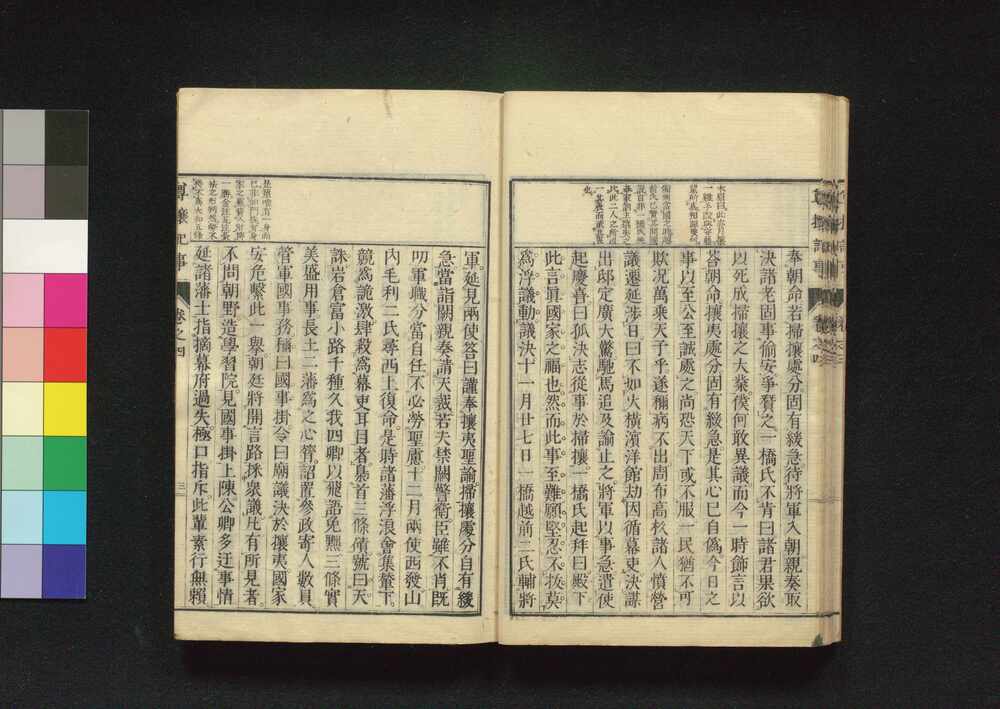 奉朝命若掃攘處分固有緩急待將軍入朝親奏取
決諸老固事偷安爭贊之一橋氏不肯曰諸君果欲
以死成掃攘之大業僕何敢異議而今一時飾言以
答朝命攘夷處分固有緩急是其心已自僞今日之
事以至公至誠處之尚恐天下或不服一民猶不可
欺况萬乘天子乎遂稱病不出周布高杉諸人憤營
議遷延涉日曰不如火橫濱洋館劫因循幕吏決謀
出邸定廣大驚馳馬追及諭止之將軍以事急遣使
起慶喜曰孤決志從事於掃攘。一橋氏起拜曰殿下
此言眞國家之福也然而此事至難願堅忍不拔莫
爲浮議動議決十一月廿七日一橋越前二氏輔將
軍。延見兩使答曰謹奉攘夷聖諭。掃攘處分自有緩
急。當詣闕親奏請天裁若夫禁闕警衛。臣雖不肖既
叨軍職分當自任不必勞聖慮。十二月兩使西發。山
內毛利二氏尋西上復命。是時諸藩浮浪會集輦下。
競爲詭激肆殺爲幕吏耳目者。梟首三條磧號曰天
誅岩倉富小路千種久我四卿以罷語免黜三條實
美盛用事長土二藩爲之心膂詔置參政寄人數員
管軍國事務稱曰國事掛令曰廟議決於攘夷國家
安危繫此一擧。朝廷將開言路採衆議凡有所見者。
不問朝野造學習院。見國事掛上陳公卿多迂事情
延諸藩士指摘幕府過失。極口指斥。此輩素行無賴
尊攘紀事
卷之四
三